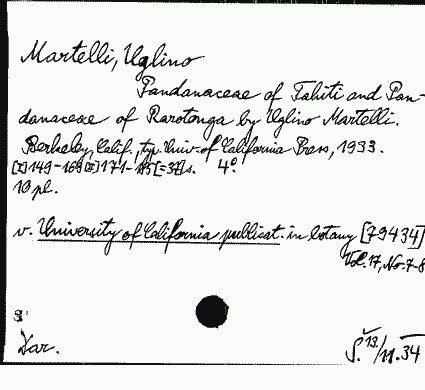 Martelli, Uglino
Pandanaceae of Tahiti and Pan-
danaceae of Rarotonga by Uglino Martelli.
Berkeley, Calif., typ. Univ. of California Press, 1933.
[I] 149-169 [II] 171- s. 4°.
10 pl.
v. University of California publicat. in botany [79434]
Vol. 17, No. 7-8
Var.
S. 13/11. 34